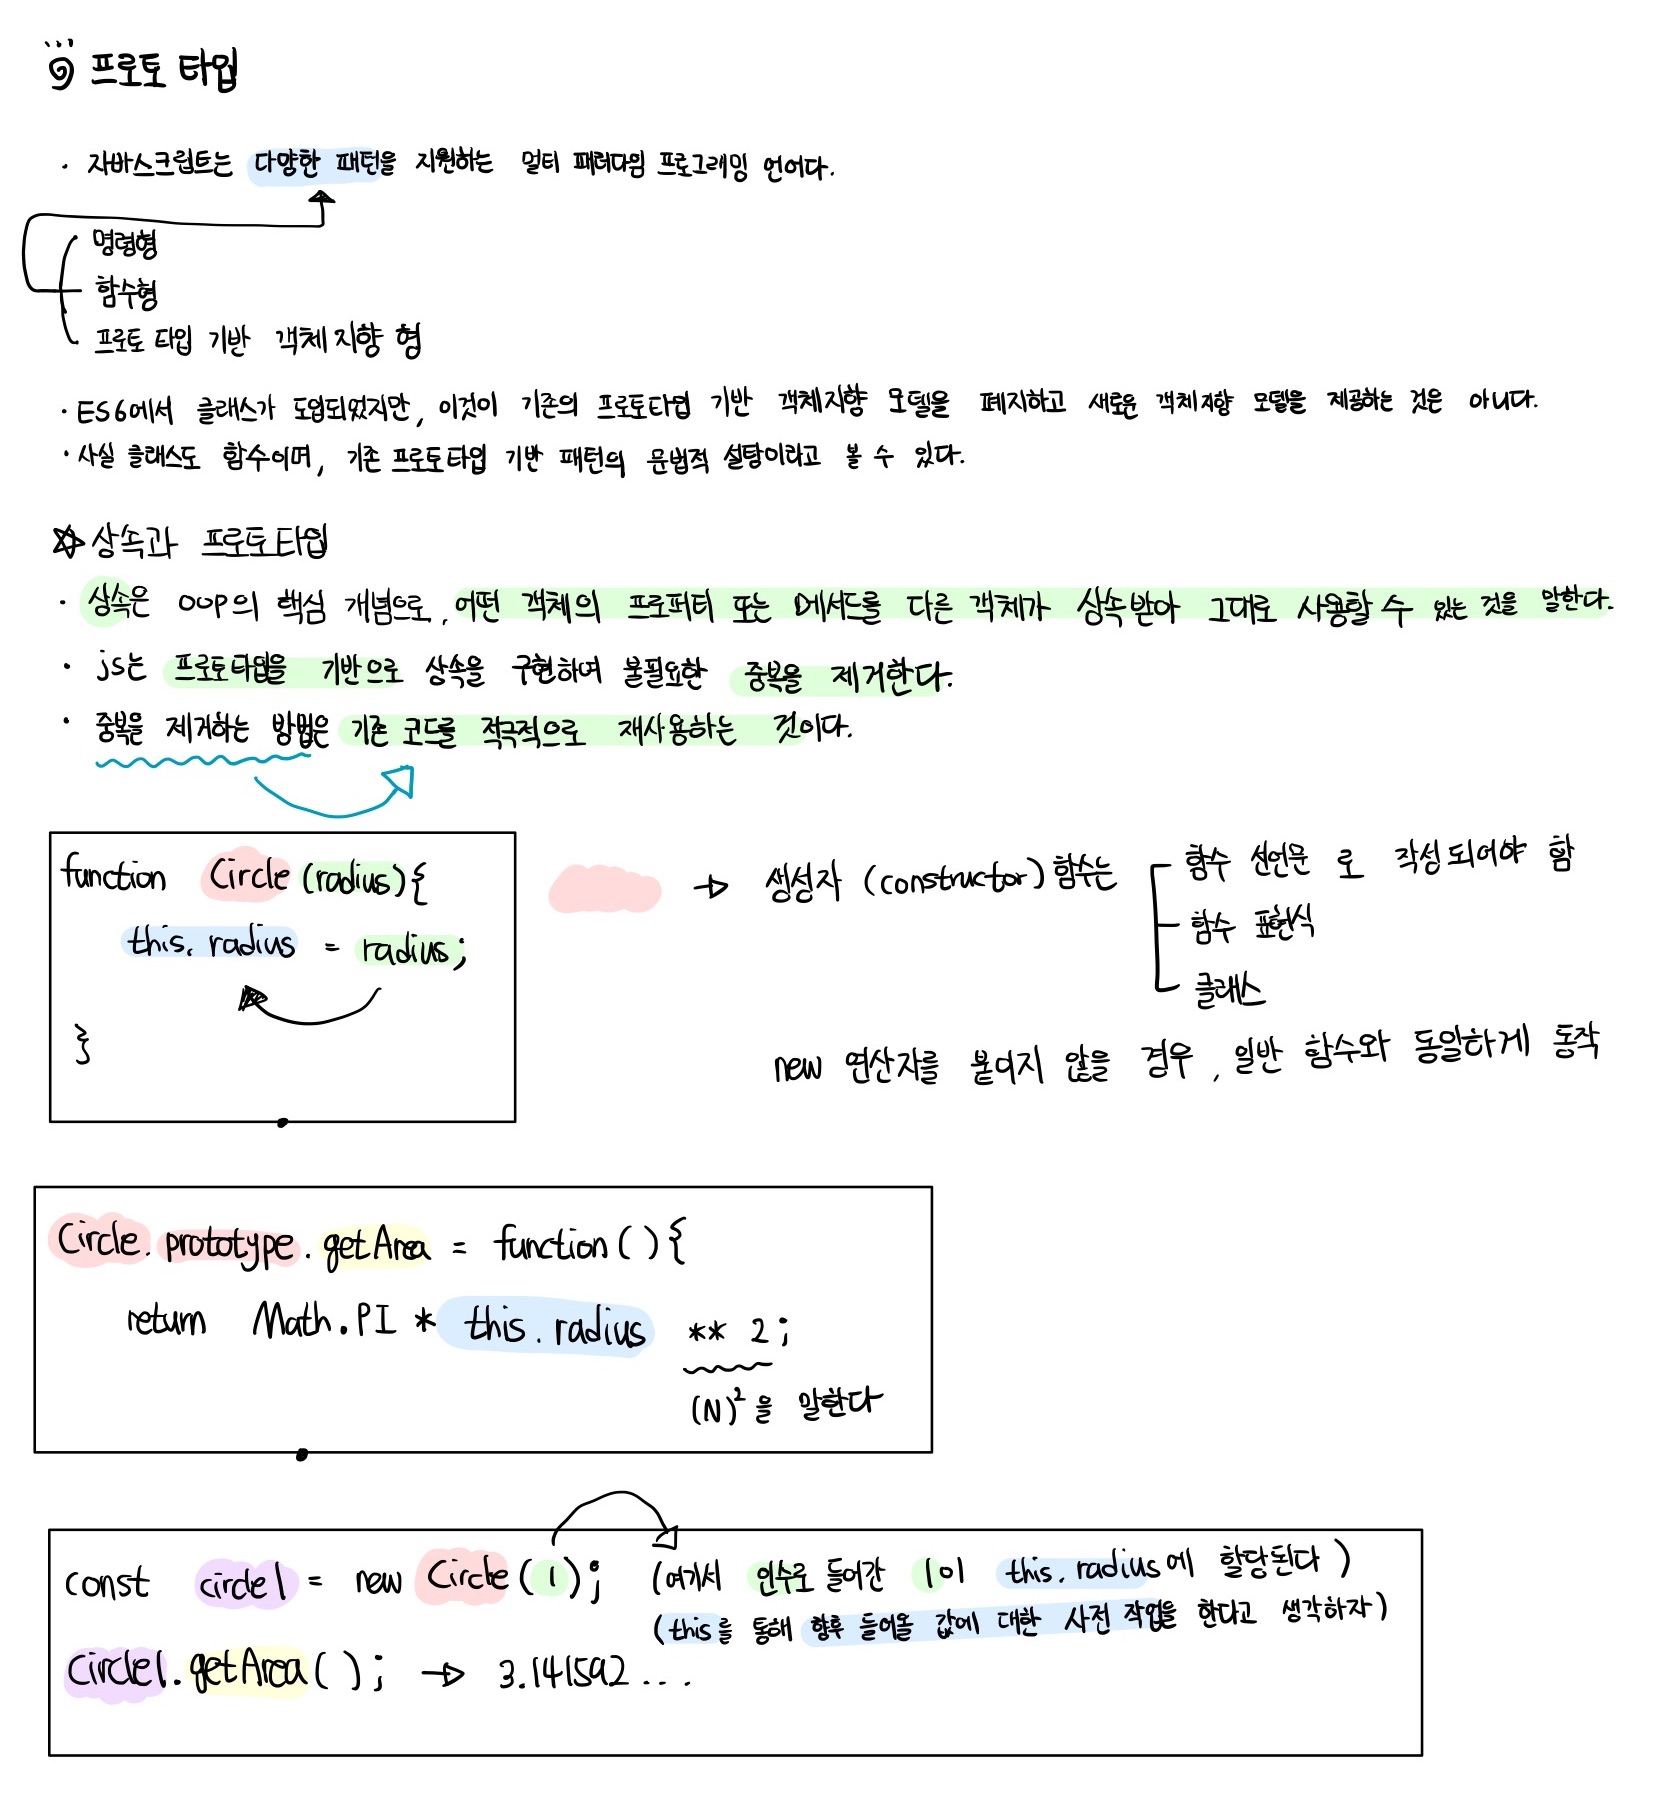 프로토 타입
· 자바스크립트는 다양한 패턴을 지원하는 멀티 패러다임 프로그래밍 언어다.
명령형
함수형
프로토 타입 기반 객체지향 형
· ES6에서 클래스가 도입되었지만, 이것이 기존의 프로토타입 기반 객체지향 모델을 폐지하고 새로운 객체지향 모델을 제공하는 것은 아니다.
· 사실 클래스도 함수이며, 기존 프로토타입 기반 패턴의 문법적 설탕이라고 볼 수 있다.
☆ 상속과 프로토타입
· 상속은 OOP의 핵심 개념으로, 어떤 객체의 프로퍼티 또는 메서드를 다른 객체가 상속받아 그대로 사용할 수 있는 것을 말한다.
· js는 프로토타입을 기반으로 상속을 구현하여 불필요한 중복을 제거한다.
· 중복을 제거하는 방법은 기존 코드를 적극적으로 재사용하는 것이다.
function Circle (radius){
this. radius = radius;
}
→ 생성자 (constructor) 함수는
함수 선언문 로 작성되어야 함
함수 표현식
클래스
new 연산자를 붙이지 않을 경우, 일반 함수와 동일하게 동작
Circle. prototype. getArea = function( ){
return Math.PI * this. radius ** 2;
(N)²을 말한다
const circle1 = new Circle (1); (여기서 인수로 들어간 1이 this. radius에 할당된다)
(this를 통해 향후 들어올 값에 대한 사전 작업을 한다고 생각하자)
circle1. getArea ( ); → 3.141592...